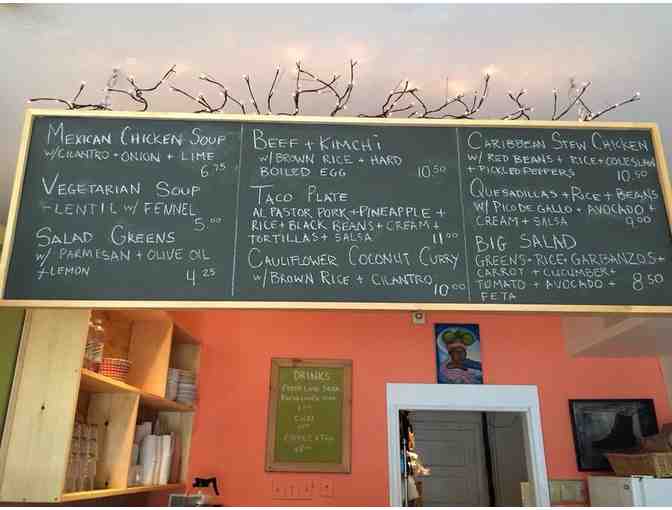 MEXICAN CHICKEN SOUP
W/CILANTRO + ONION + LIME
6.75
VEGETARIAN SOUP
- LENTIL W/ FENNEL
5.00
SALAD GREENS
W/ PARMESAN + OLIVE OIL
+ LEMON 4.25
BEEF + KIMCHI
W/ BROWN RICE + HARD
BOILED EGG 10.50
TACO PLATE
AL PASTOR PORK + PINEAPPLE +
RICE + BLACK BEANS + CREAM +
TORTILLAS + SALSA 11.00
CAULIFLOWER COCONUT CURRY
W/ BROWN RICE + CILANTRO
10.00
CARIBBEAN STEW CHICKEN
W/ RED BEANS + RICE + COLESLAW
+ PICKLED PEPPERS 10.50
QUESADILLAS + RICE + BEANS
W/ PICO DE GALLO + AVOCADO +
CREAM + SALSA 9.00
BIG SALAD
GREENS + RICE + GARBANZOS +
CARROT + CUCUMBER +
TOMATO + AVOCADO + 8.50
FETA
DRINKS